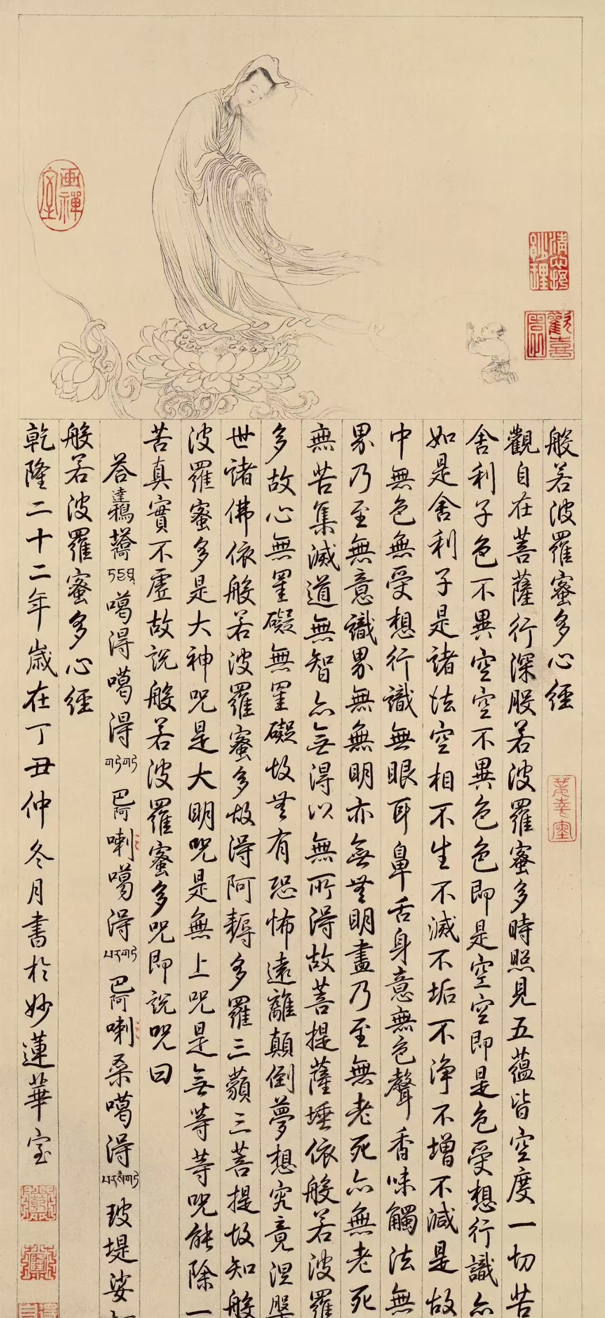 般若波羅蜜多心經
觀自在菩薩行深般若波羅蜜多時照見五蘊皆空度一切苦
舍利子色不異空空不異色色即是空空即是色受想行識亦
如是舍利子是諸法空相不生不滅不垢不淨不增不減是故
中無色無受想行識無眼耳鼻舌身意無色聲香味觸法無
界乃至無意識界無無明亦無無明盡乃至無老死亦無老死
無苦集滅道無智亦無得以無所得故菩提薩埵依般若波羅
多故心無罣礙無罣礙故無有恐怖遠離顛倒夢想究竟涅槃
世諸佛依般若波羅蜜多故得阿耨多羅三藐三菩提故知般
波羅蜜多是大神呪是大明呪是無上呪是無等等呪能除一
苦真實不虛故說般若波羅蜜多呪即說呪曰
答達鴉塔噶得噶得巴阿喇噶得巴阿喇桑噶得玻堤娑
般若波羅蜜多心經
乾隆二十二年歲在丁丑仲冬月書於妙蓮華室
畫禪室
歡喜園